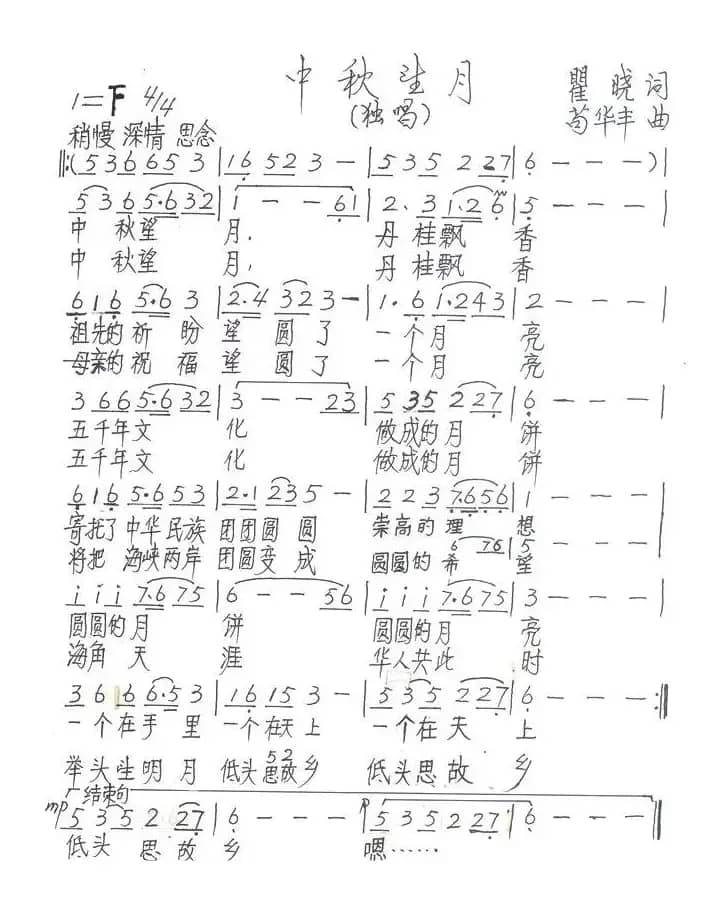 中秋望月
(独唱)
瞿晓词
苟华丰曲
1=F 4/4
稍慢 深情 思念
‖:(5 3 6 6 5 3 | 1 6 5 2 3 - | 5 3 5 2 2 7 | 6 - - - )|
5 3 6 5·6 3 2 | 1 - - 6 1 | 2· 3 1·2 6 | 5 - - - |
中 秋望 月, 丹桂飘 香
中 秋望 月, 丹桂飘 香
6 1 6 5·6 3 | 2·4 3 2 3 - | 1· 6 1·2 4 3 | 2 - - - |
祖先的祈 盼 望 圆 了 一个月 亮
母亲的祝 福 望 圆 了 一个月 亮
3 6 6 5·6 3 2 | 3 - - 2 3 | 5 3 5 2 2 7 | 6 - - - |
五千年文 化 做成的月 饼
五千年文 化 做成的月 饼
6 1 6 5·6 5 3 | 2·1 2 3 5 - | 2 2 3 7·6 5 6 | 1 - - - |
寄托了中华民族 团团圆 圆 崇高的理 想
6 7 6 | 5 - - |
将把 海峡两岸 团圆变 成 圆圆的希 望
i i i 7·6 7 5 | 6 - - 5 6 | i i i 7·6 7 5 | 3 - - - |
圆圆的月 饼 圆圆的月 亮
海角 天 涯 华人共此 时
3 6 1 6 6·5 3 | 1 6 1 5 3 - | 5 3 5 2 2 7 | 6 - - - :‖
一个在手 里 一个在天上 一个在天 上
5 2
举头望明 月 低头思故乡 低头思故 乡
结束句
mp 5 3 5 2 2 7 | 6 - - - | p 5 3 5 2 2 7 | 6 - - - ‖
低头 思故 乡 嗯……